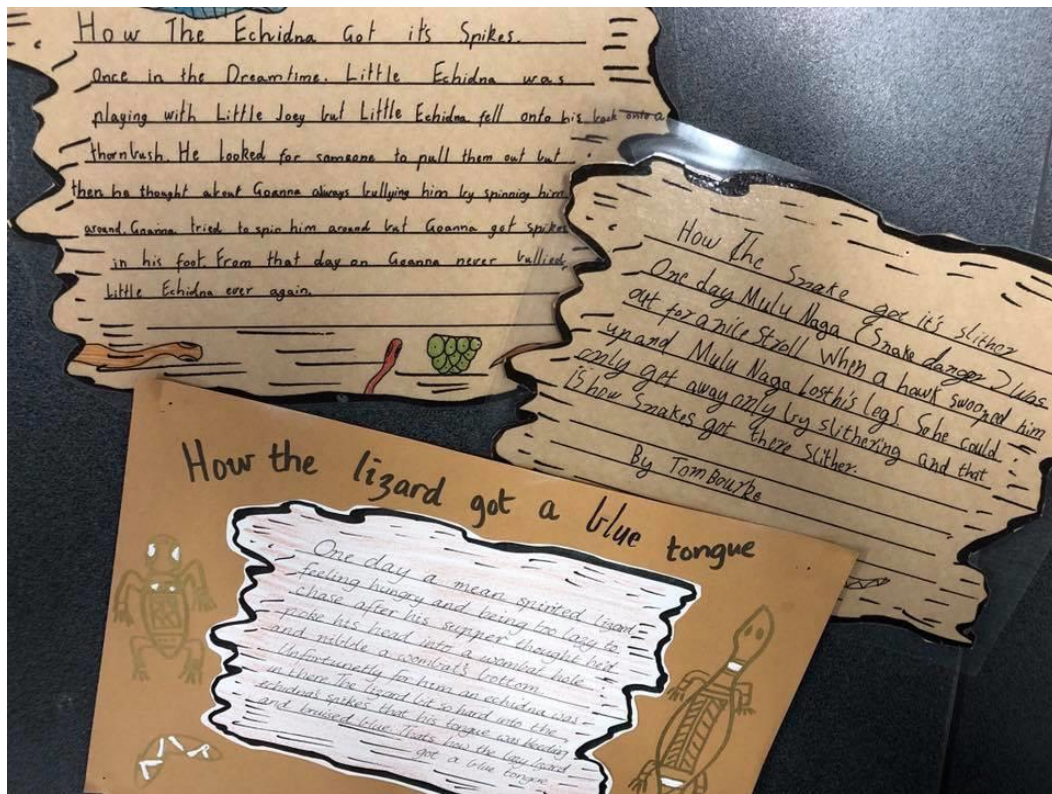 How The Echidna Got it's Spikes.
Once in the Dreamtime. Little Echidna was
playing with Little Joey but Little Echidna fell onto his back onto a
thornbush. He looked for someone to pull them out but
then he thought about Goanna always bullying him by spinning him
around. Goanna tried to spin him around but Goanna got spikes
in his foot. From that day on Goanna never bullied,
Little Echidna ever again.
How The Snake got it's slither
One day Mulu Naga (Snake danger) was
out for a nice stroll When a hawk swooped him
up and Mulu Naga Lost his legs. So he could
only get away only by slithering and that
is how Snakes got there slither.
By Tom Bourke
How the lizard got a blue tongue
One day a mean spirited lizard
feeling hungry and being too lazy to
chase after his supper thought he'd
poke his head into a wombat hole
and nibble a wombat's bottom
Unfortunetly for him an echidna was
in there The lizard bit so hard into the
echidna's spikes that his tongue was bleeding
and bruised blue. That's how the lazy lizard
got a blue tongue